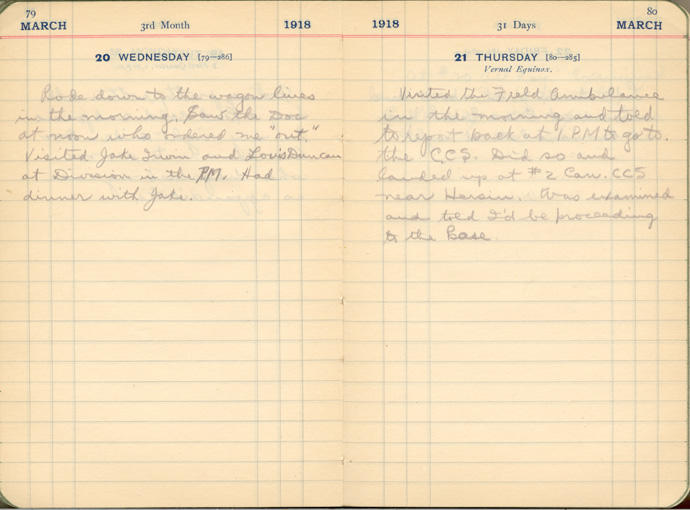 79
MARCH 3rd Month 1918
20 WEDNESDAY [79—286]
Rode down to the wagon lines
in the morning. Saw the Doc
at noon who ordered me "out."
Visited Jake Irwin and Louis Duncan
at Division in the P.M. Had
dinner with Jake.
80
1918 31 Days MARCH
21 THURSDAY [80—285]
Vernal Equinox.
Visited the Field Ambulance
in the morning and told
to report back at 1 PM to go to
the C.C.S. Did so and
landed up at #2 Can. CCS
near Hersin. Was examined
and told I'd be proceeding
to the Base.